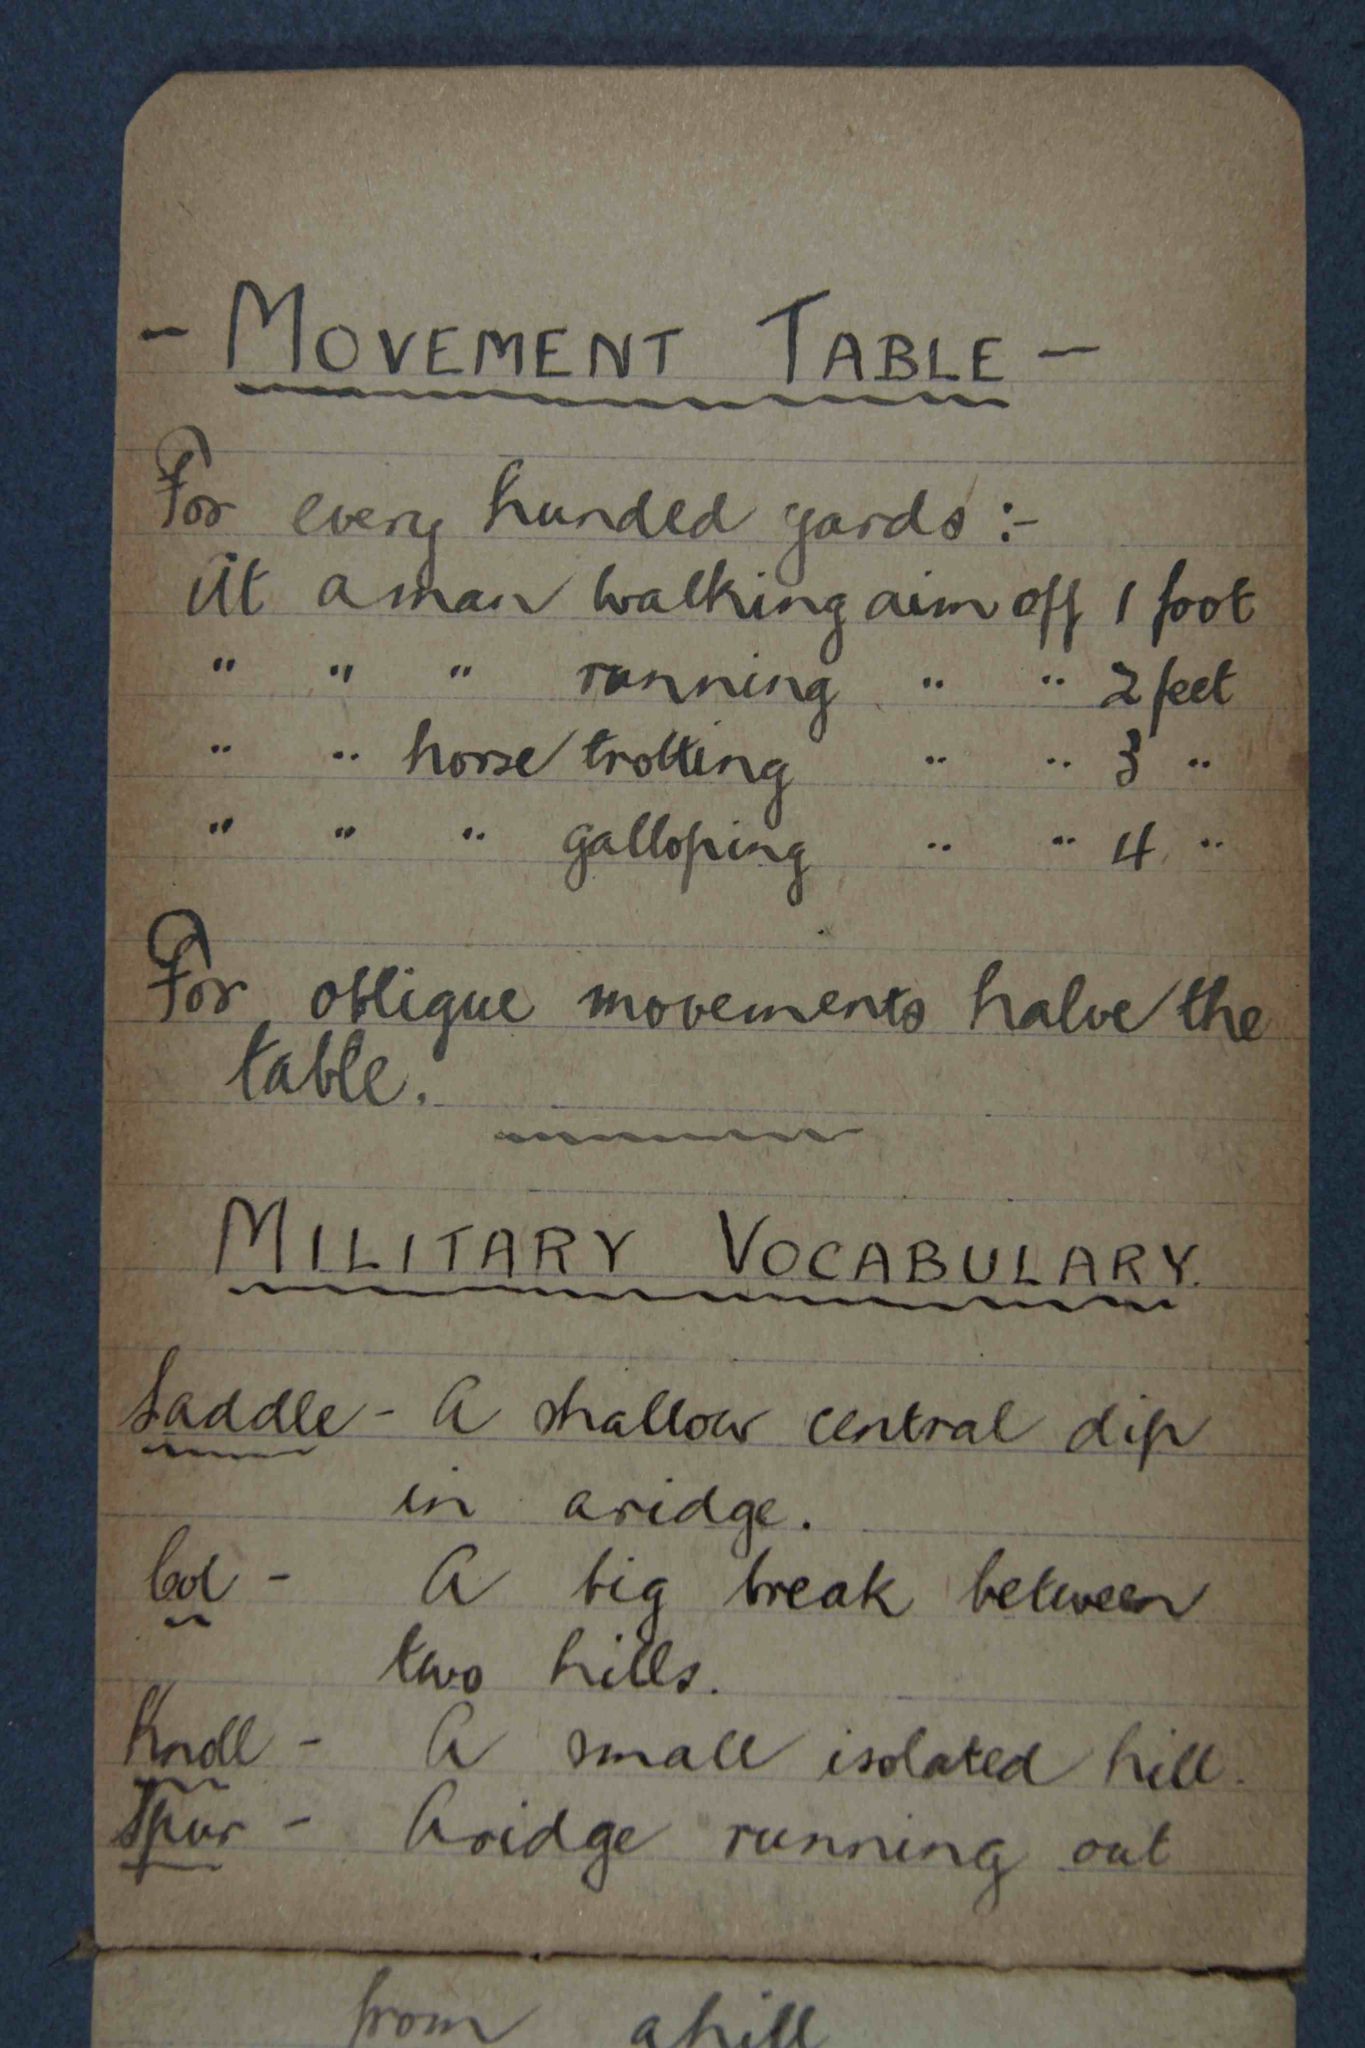 - MOVEMENT TABLE -
For every hunded yards :-
At a man walking aim off 1 foot
" " " running " " 2 feet
" " horse trotting " " 3 "
" " " galloping " " 4 "
For oblique movements halve the
table.
MILITARY VOCABULARY.
Saddle - A shallow central dip
in a ridge.
Col - A big break between
two hills.
Knoll - A small isolated hill.
Spur - A ridge running out
from a hill